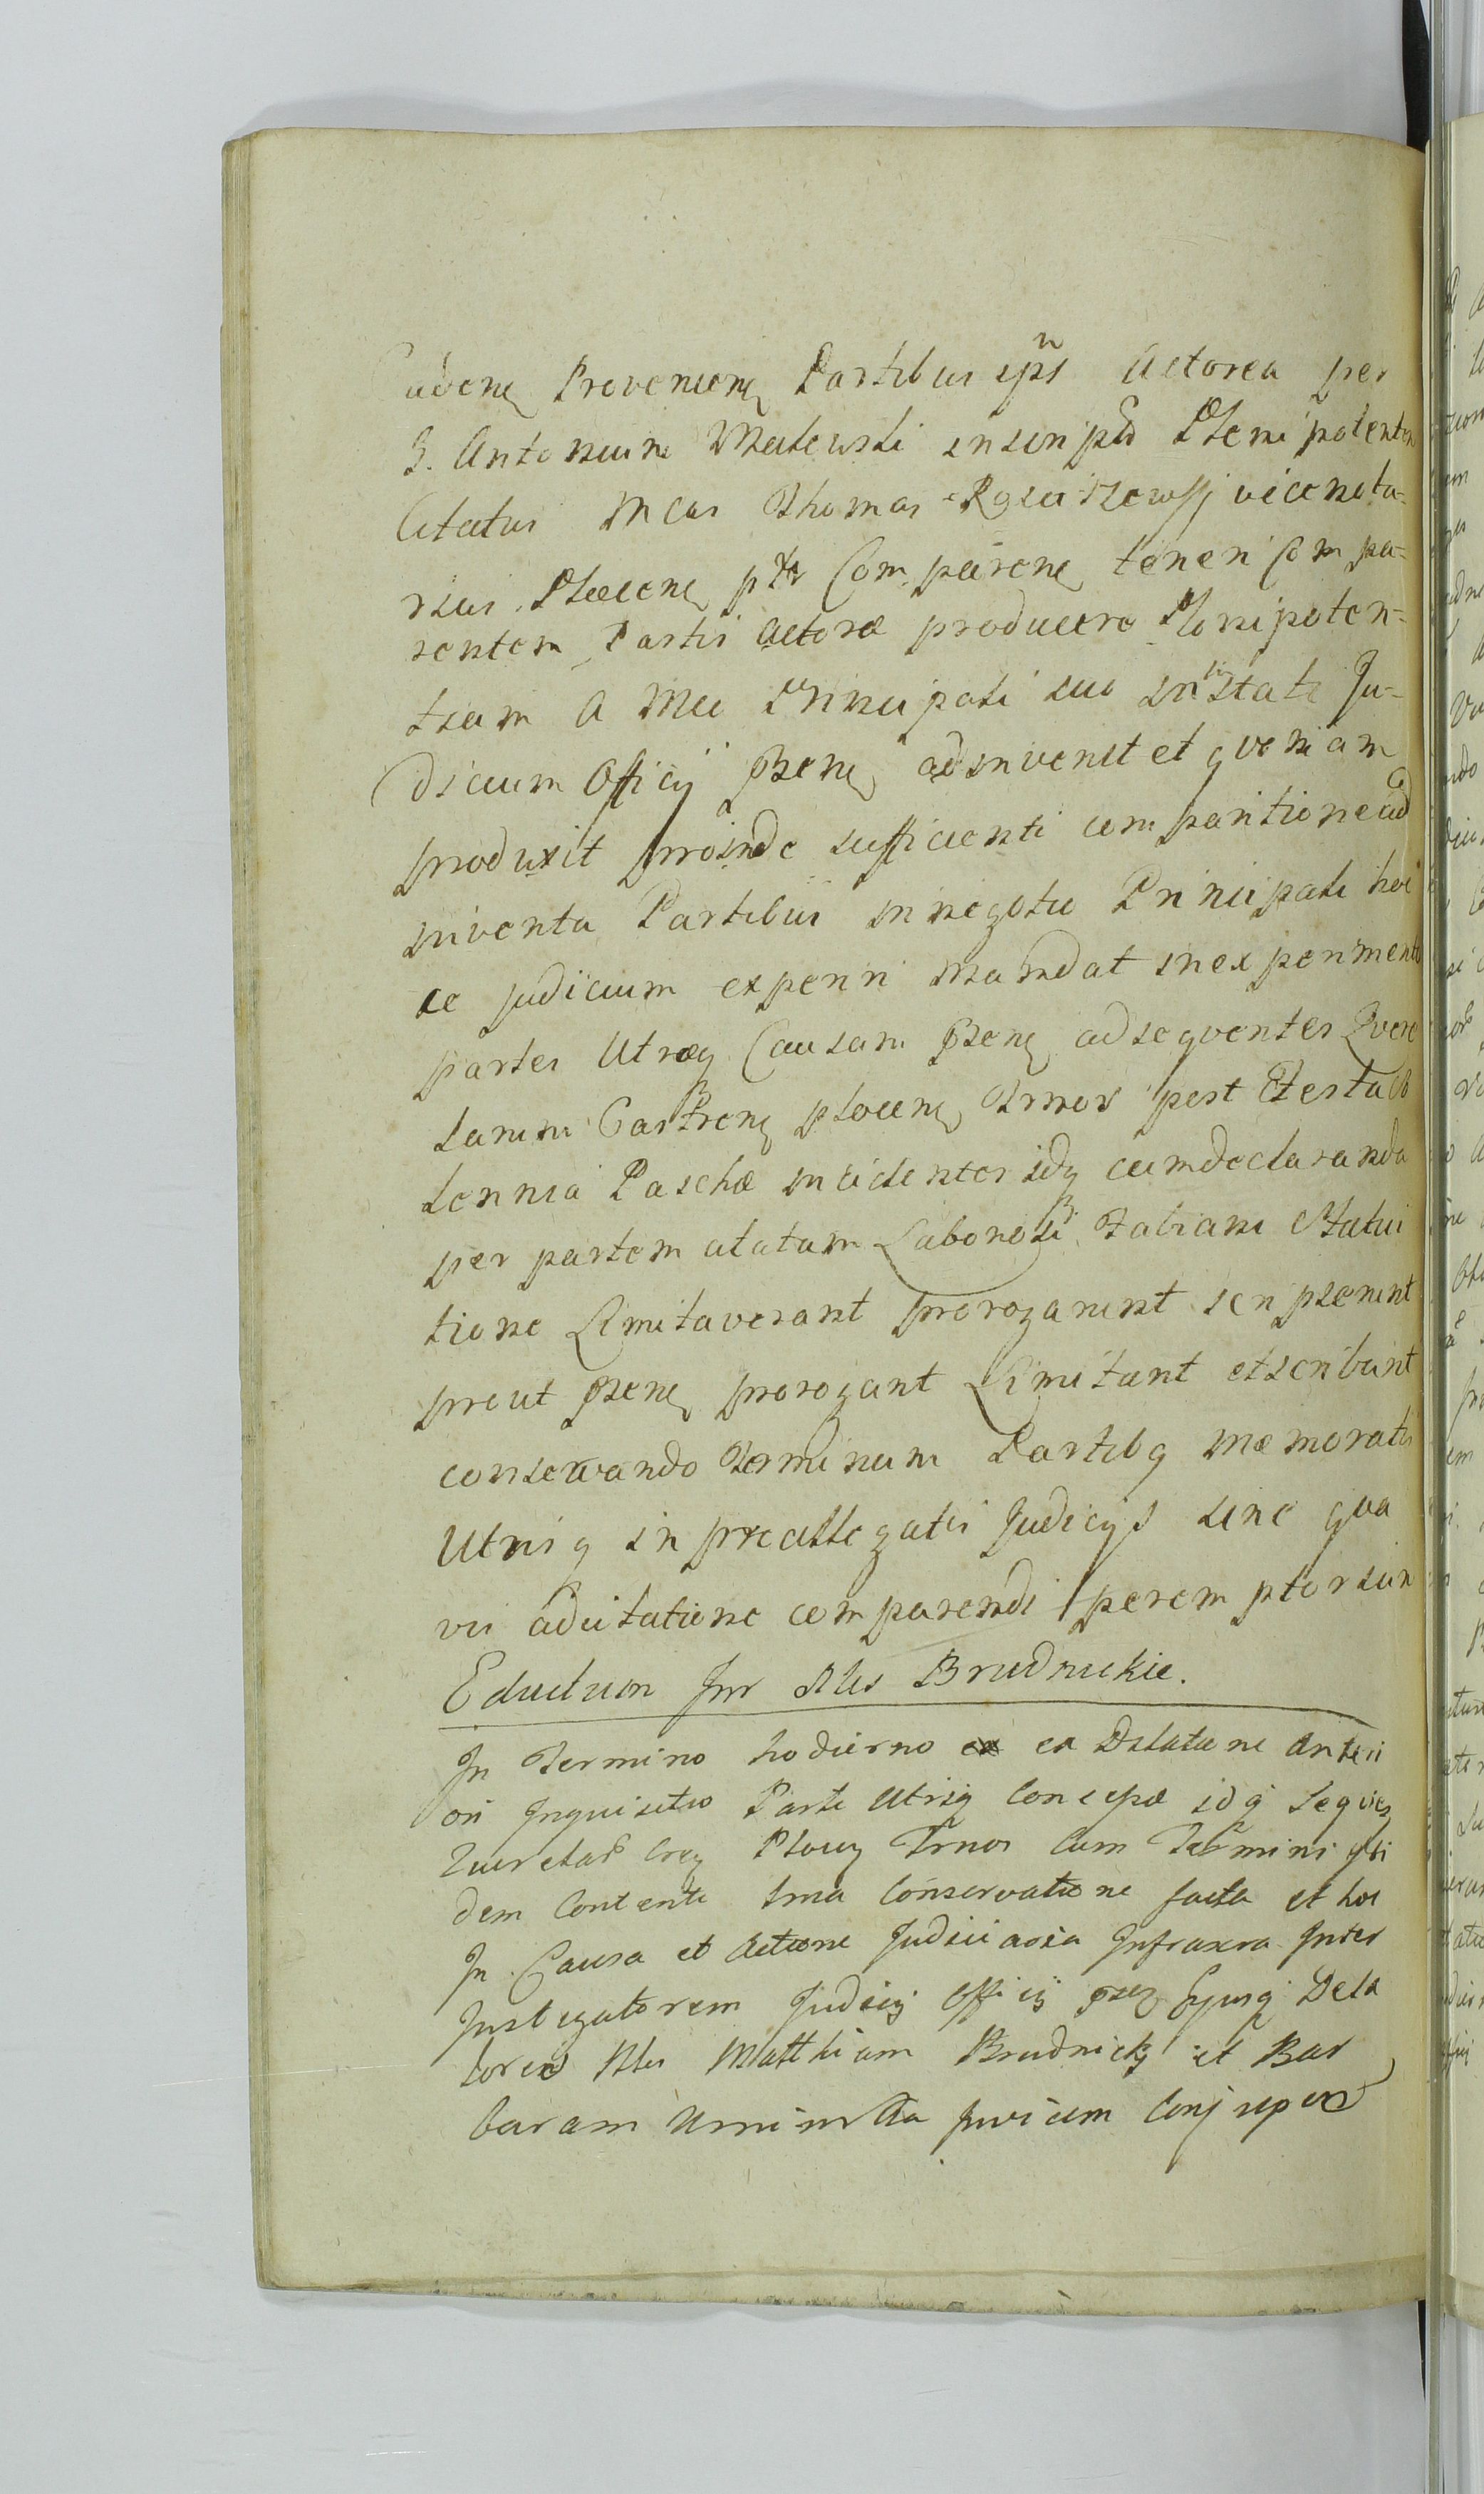 cadenȩ Provenienȩ Partibus ipñs Actorea per
G. Antonium Malewski inscriptũ Plenipotentem
Citatus Mcus Thomas Rościszewsfi vicenota-
rius Plocenȩ ptr Comparenȩ teneri Compa-
rentem Partis Actoræ producere Plenipoten-
tiam A Mco Principali suo in instãti Ju-
dicium Officij præsenȩ adinvenit et qvoniam
produxit proinde sufficienti comparitione ad
inventa Partibus in negotio Principali hoc
ce Judicium experiri mandat in experimento
partes Utræq Causam præsenȩ ad seqventes Qvere
larum Castrenȩ plocenȩ Trnos post Festa So
lennia Paschæ incidentes idq cum declaranda
per partem citatam Laboriosi Fabiani Statui
tione Limitaverant prorogarunt scripserunt
prout præsenȩ prorogant Limitant et scribunt
conservando Terminum Partibq Mæmoratis
Utrisq in præallegatis Judicijs sine qva
vis adcitatione comparendi peremptorium
Eductum Inr Nles Brudnickie.
In Termino hodierno ex Dilatione Anteri
ori Inquisitio Parte Utriq Concepta idq Seqvies
Querelar Crȩ Plocȩ Trnos Cum Termini ibi
dem Contenti Irma Conservatione facta et hoc
In Causa et Actione Judiciaria Infraxra Inter
Instigatorem Judicij Officij præsȩ Ejusq Dela
tores Nles Matthiam Brudnicky et Bar
baram Invicem Conjuges